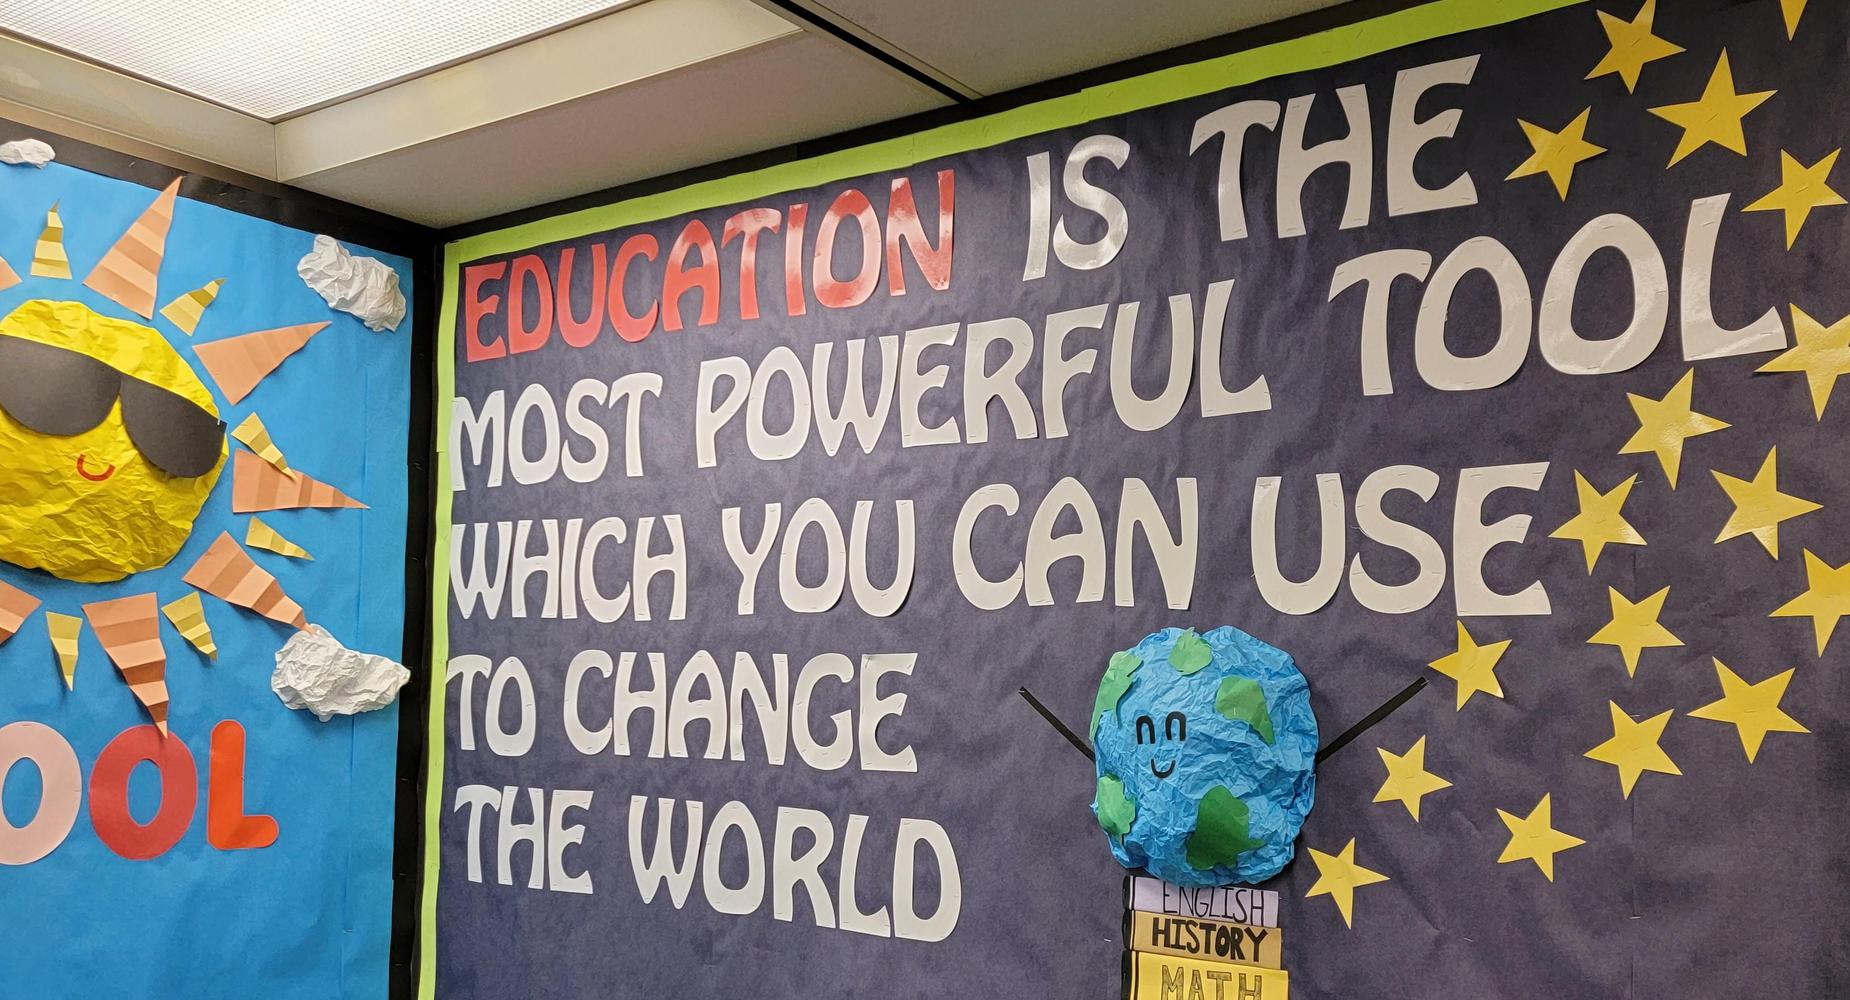 EDUCATION IS THE
MOST POWERFUL TOOL
WHICH YOU CAN USE
TO CHANGE
THE WORLD
OOL
ENGLISH
HISTORY
MATH